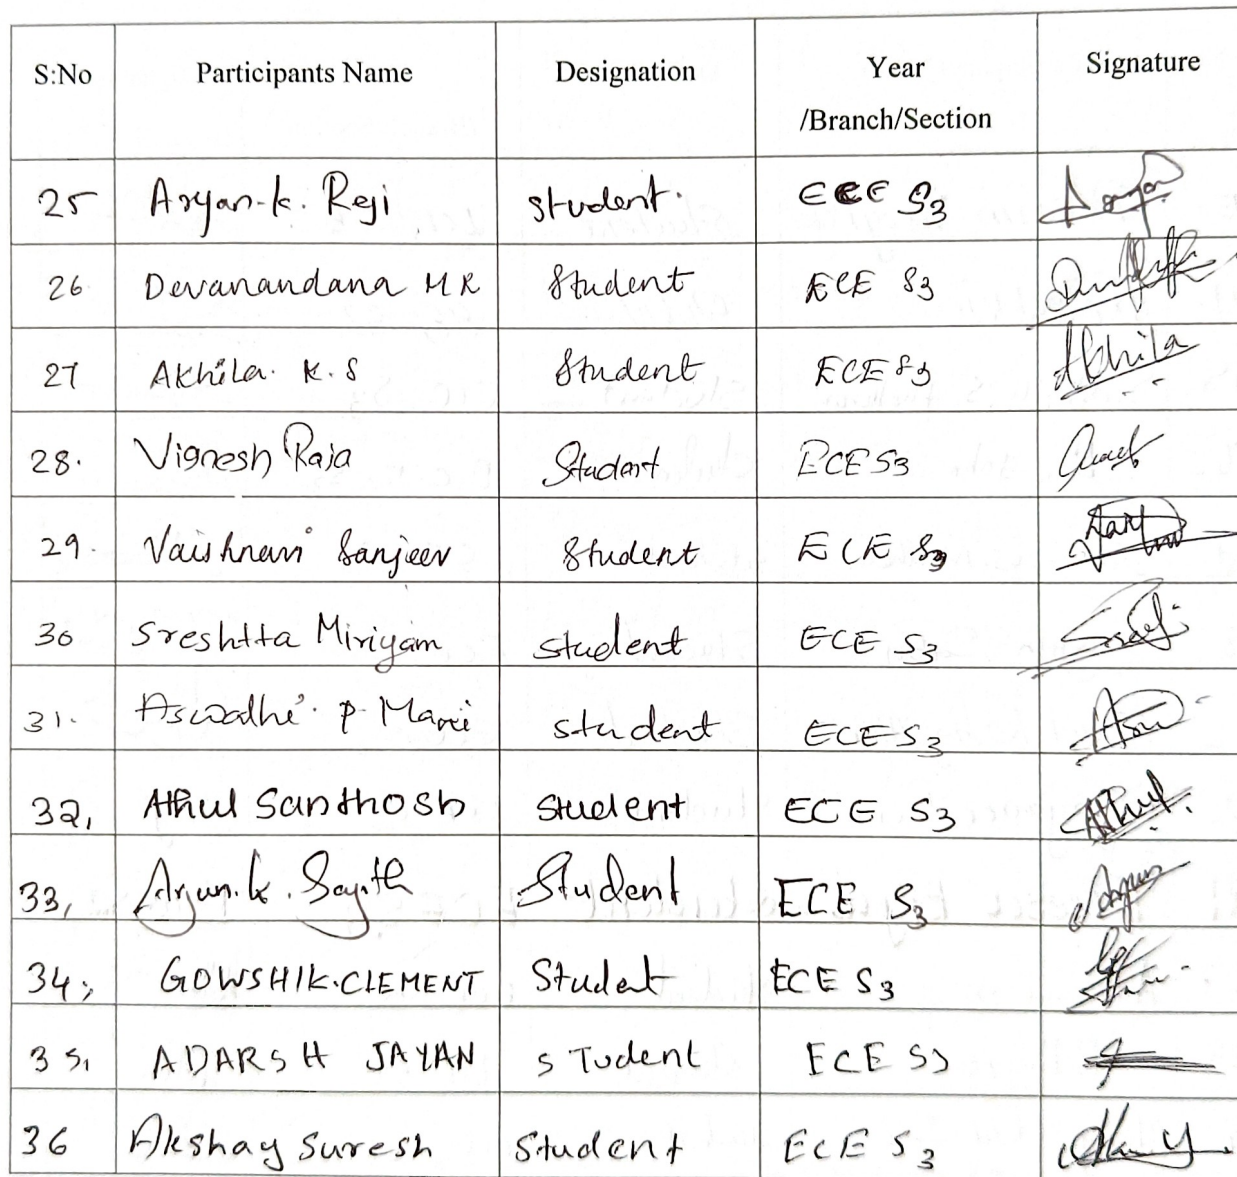 S:No Participants Name Designation Year /Branch/Section Signature
25 Aryan.k. Reji student. ECE S3
26. Devanandana M R Student ECE S3
27 Akhila. K.S Student ECE S3 Akhila
28. Vignesh Raja Student ECE S3
29. Vaishnavi Sanjeev Student ECE S3
30 Sreshtta Miriyam student ECE S3
31. Aswathi. P. student ECE S3
32, Athul Santhosh Student ECE S3 Athul
33, Arjun.k. Student ECE S3 Arjun
34, GOWSHIK.CLEMENT Student ECE S3
35, ADARSH JAYAN sTudent ECE S3
36 Akshay Suresh Student ECE S3